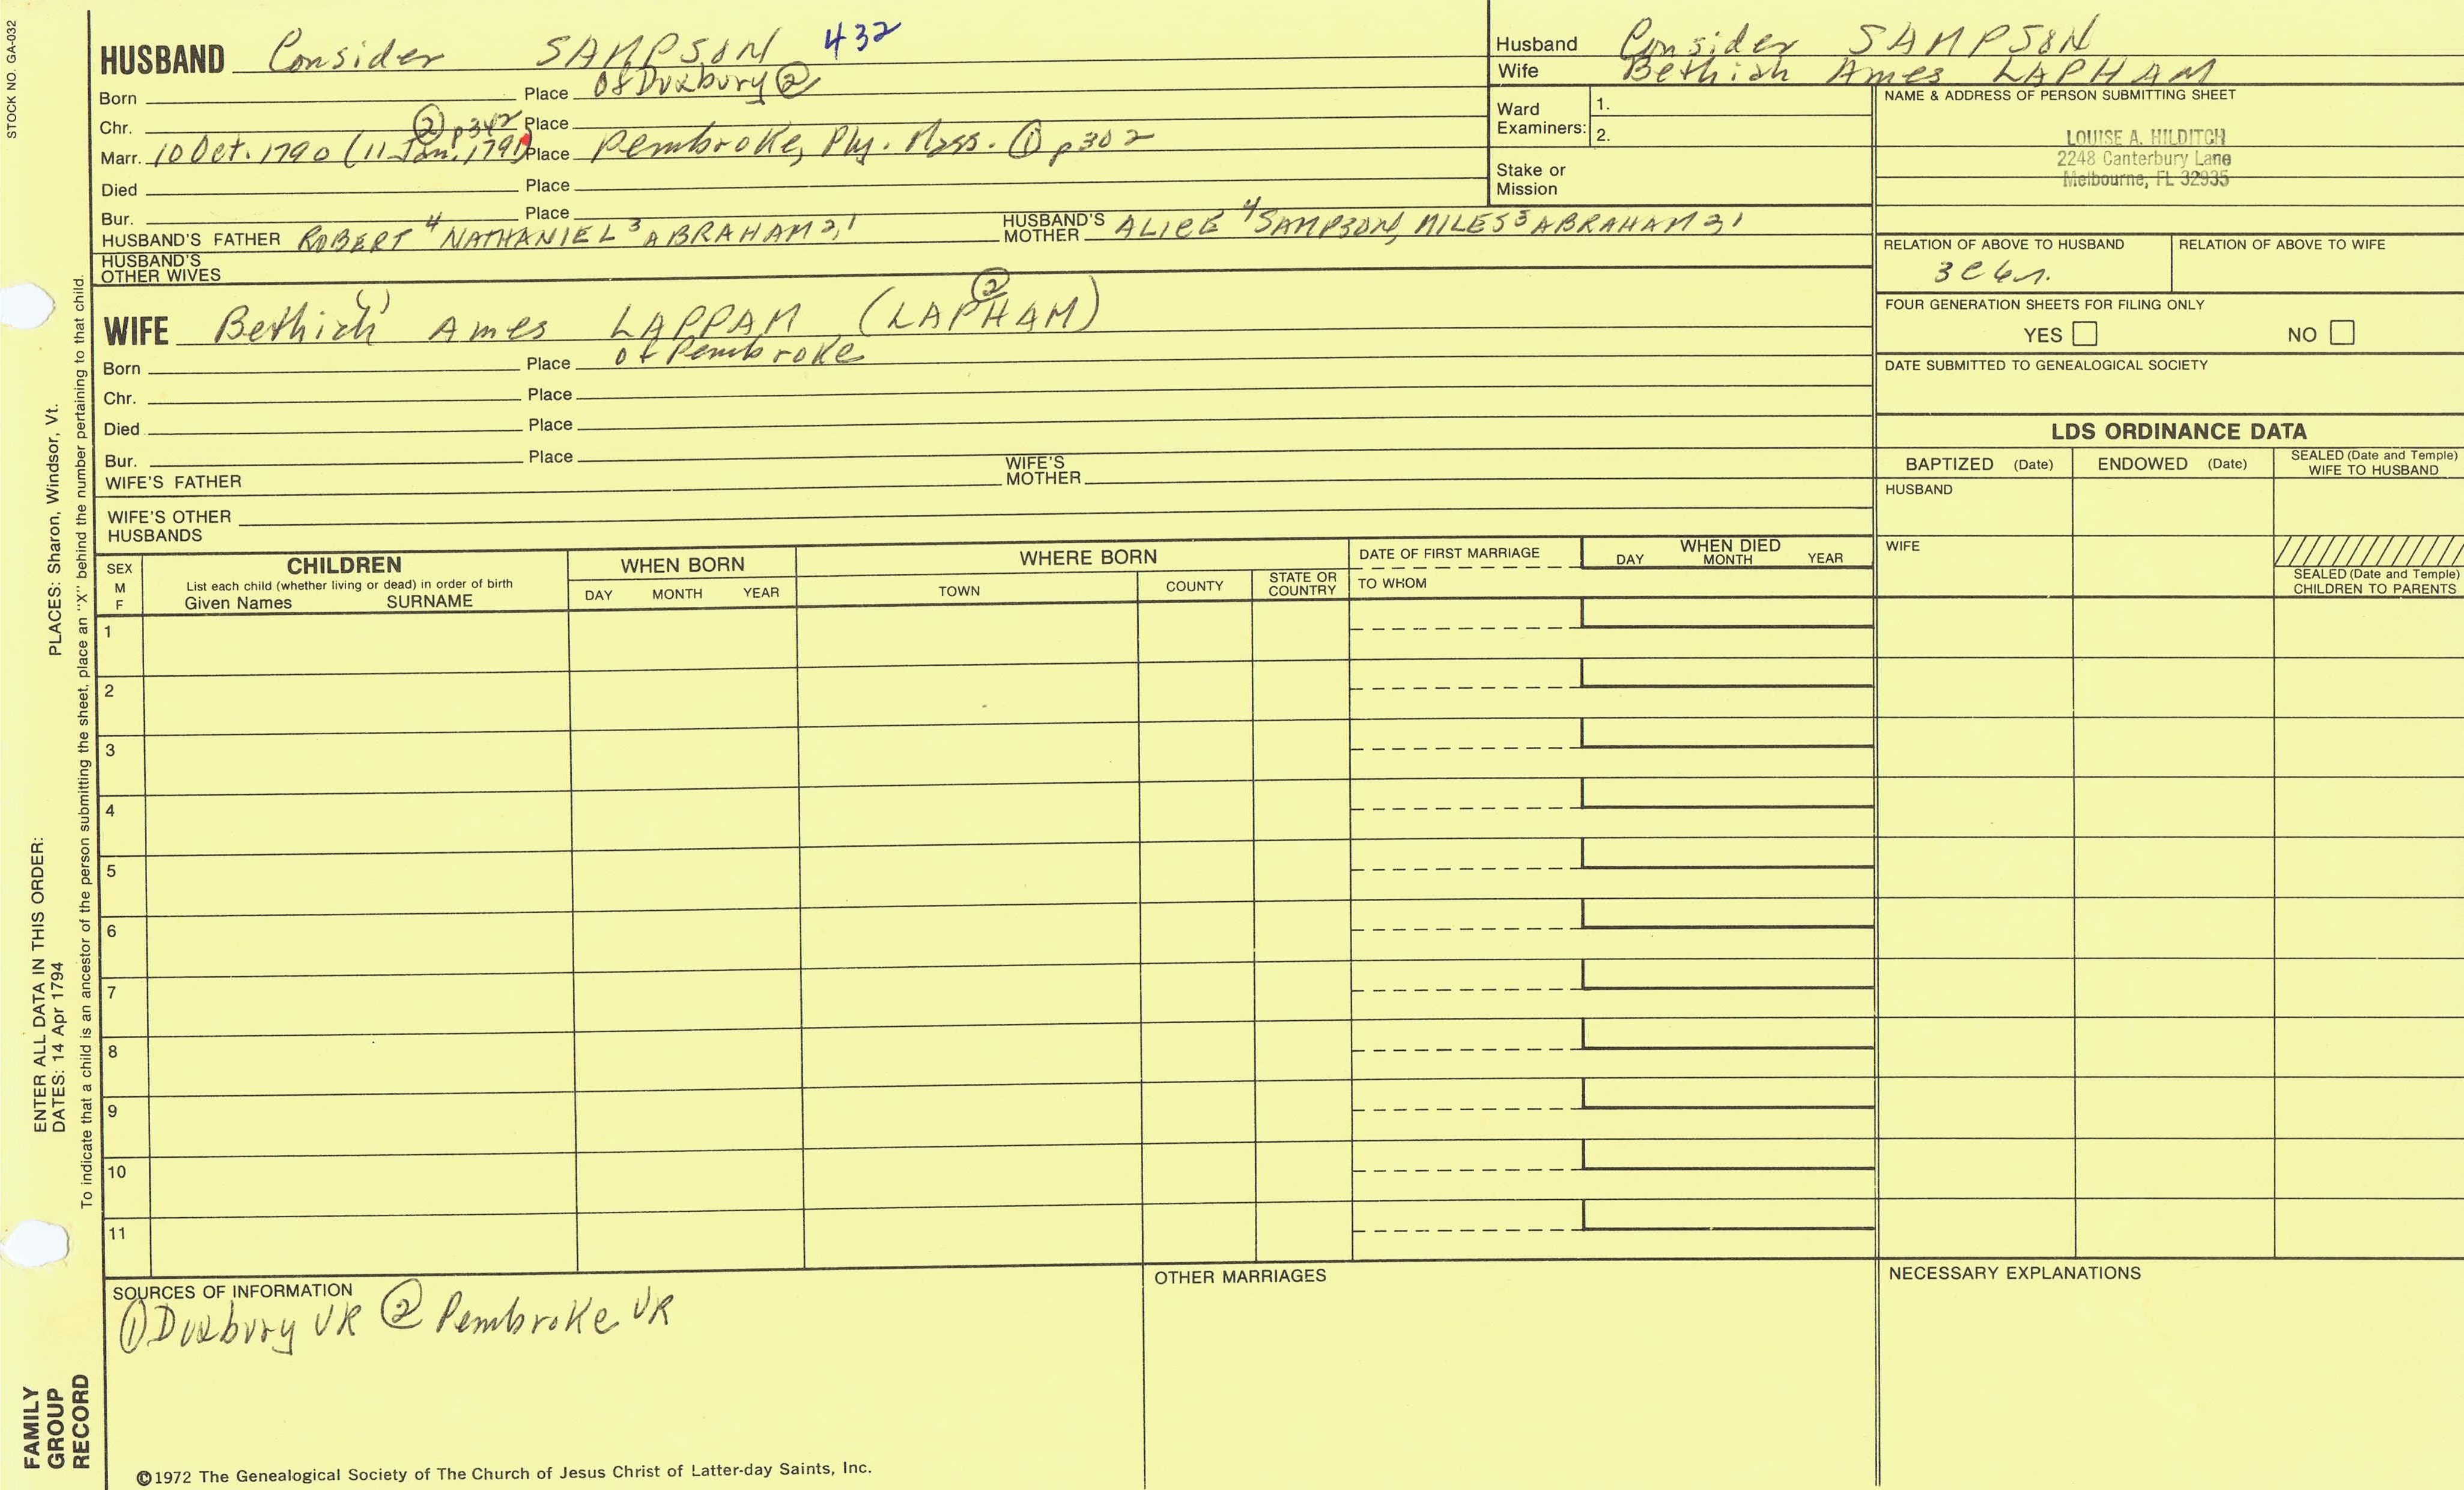 STOCK NO. GA-032
HUSBAND Consider SAMPSON 432
Born Place Of Duxbury ②
Chr. Place
Marr. 10 Oct. 1790 (11 Jan. 1791) ② p342 Place Pembroke, Ply. Mass. ① p302
Died Place
Bur. Place
HUSBAND'S FATHER ROBERT 4 NATHANIEL 3 ABRAHAM 2,1 HUSBAND'S MOTHER ALICE 4 SAMPSON, MILES 3 ABRAHAM 2 1
HUSBAND'S OTHER WIVES
WIFE Bethiah Ames LAPPAM (LAPHAM) ②
Born Place of Pembroke
Chr. Place
Died Place
Bur. Place
WIFE'S FATHER WIFE'S MOTHER
WIFE'S OTHER HUSBANDS
Husband Consider SAMPSON
Wife Bethiah Ames LAPHAM
Ward Examiners: 1.
2.
Stake or Mission
NAME & ADDRESS OF PERSON SUBMITTING SHEET
LOUISE A. HILDITCH
2248 Canterbury Lane
Melbourne, FL 32935
RELATION OF ABOVE TO HUSBAND RELATION OF ABOVE TO WIFE
3C6r.
FOUR GENERATION SHEETS FOR FILING ONLY
YES NO
DATE SUBMITTED TO GENEALOGICAL SOCIETY
LDS ORDINANCE DATA
BAPTIZED (Date) ENDOWED (Date) SEALED (Date and Temple) WIFE TO HUSBAND
HUSBAND
WIFE
SEALED (Date and Temple) CHILDREN TO PARENTS
SEX M F
CHILDREN
List each child (whether living or dead) in order of birth
Given Names SURNAME
WHEN BORN
DAY MONTH YEAR
WHERE BORN
TOWN COUNTY STATE OR COUNTRY
DATE OF FIRST MARRIAGE
TO WHOM
WHEN DIED
DAY MONTH YEAR
1
2
3
4
5
6
7
8
9
10
11
SOURCES OF INFORMATION
① Duxbury VR ② Pembroke VR
OTHER MARRIAGES
NECESSARY EXPLANATIONS
©1972 The Genealogical Society of The Church of Jesus Christ of Latter-day Saints, Inc.
ENTER ALL DATA IN THIS ORDER:
DATES: 14 Apr 1794 PLACES: Sharon, Windsor, Vt.
To indicate that a child is an ancestor of the person submitting the sheet, place an "X" behind the number pertaining to that child.
FAMILY
GROUP
RECORD